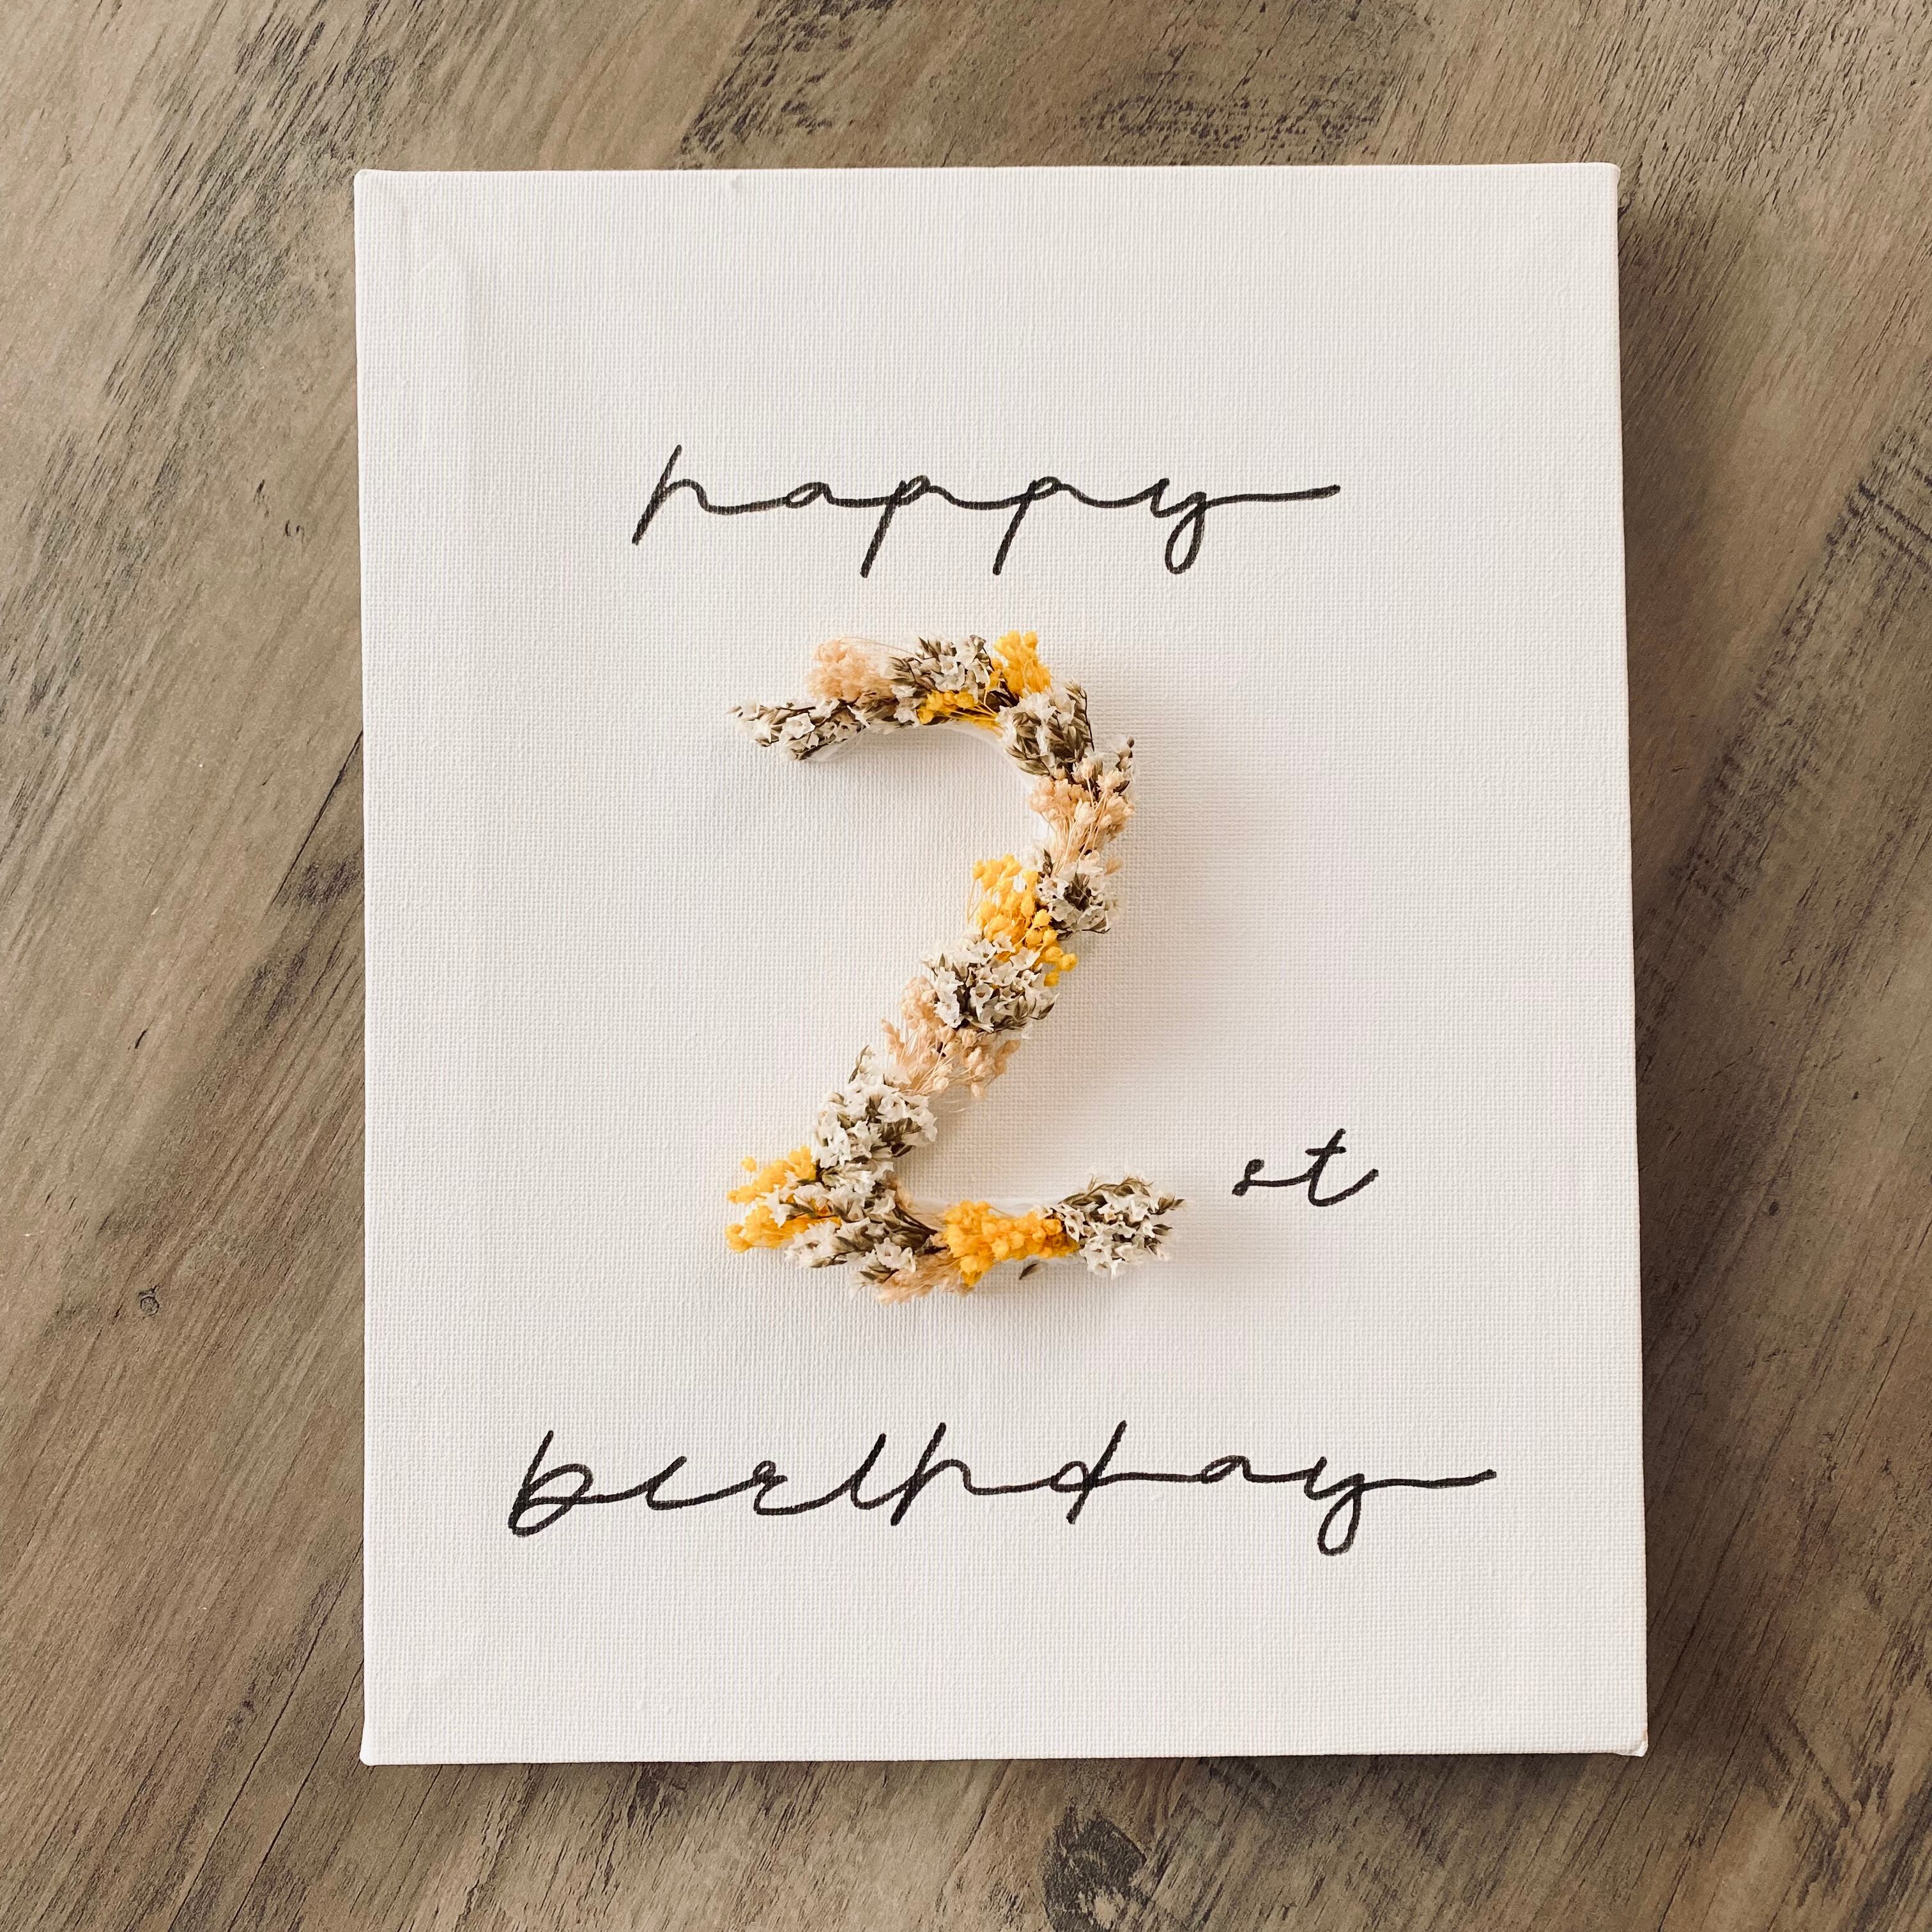 happy
2st
birthday